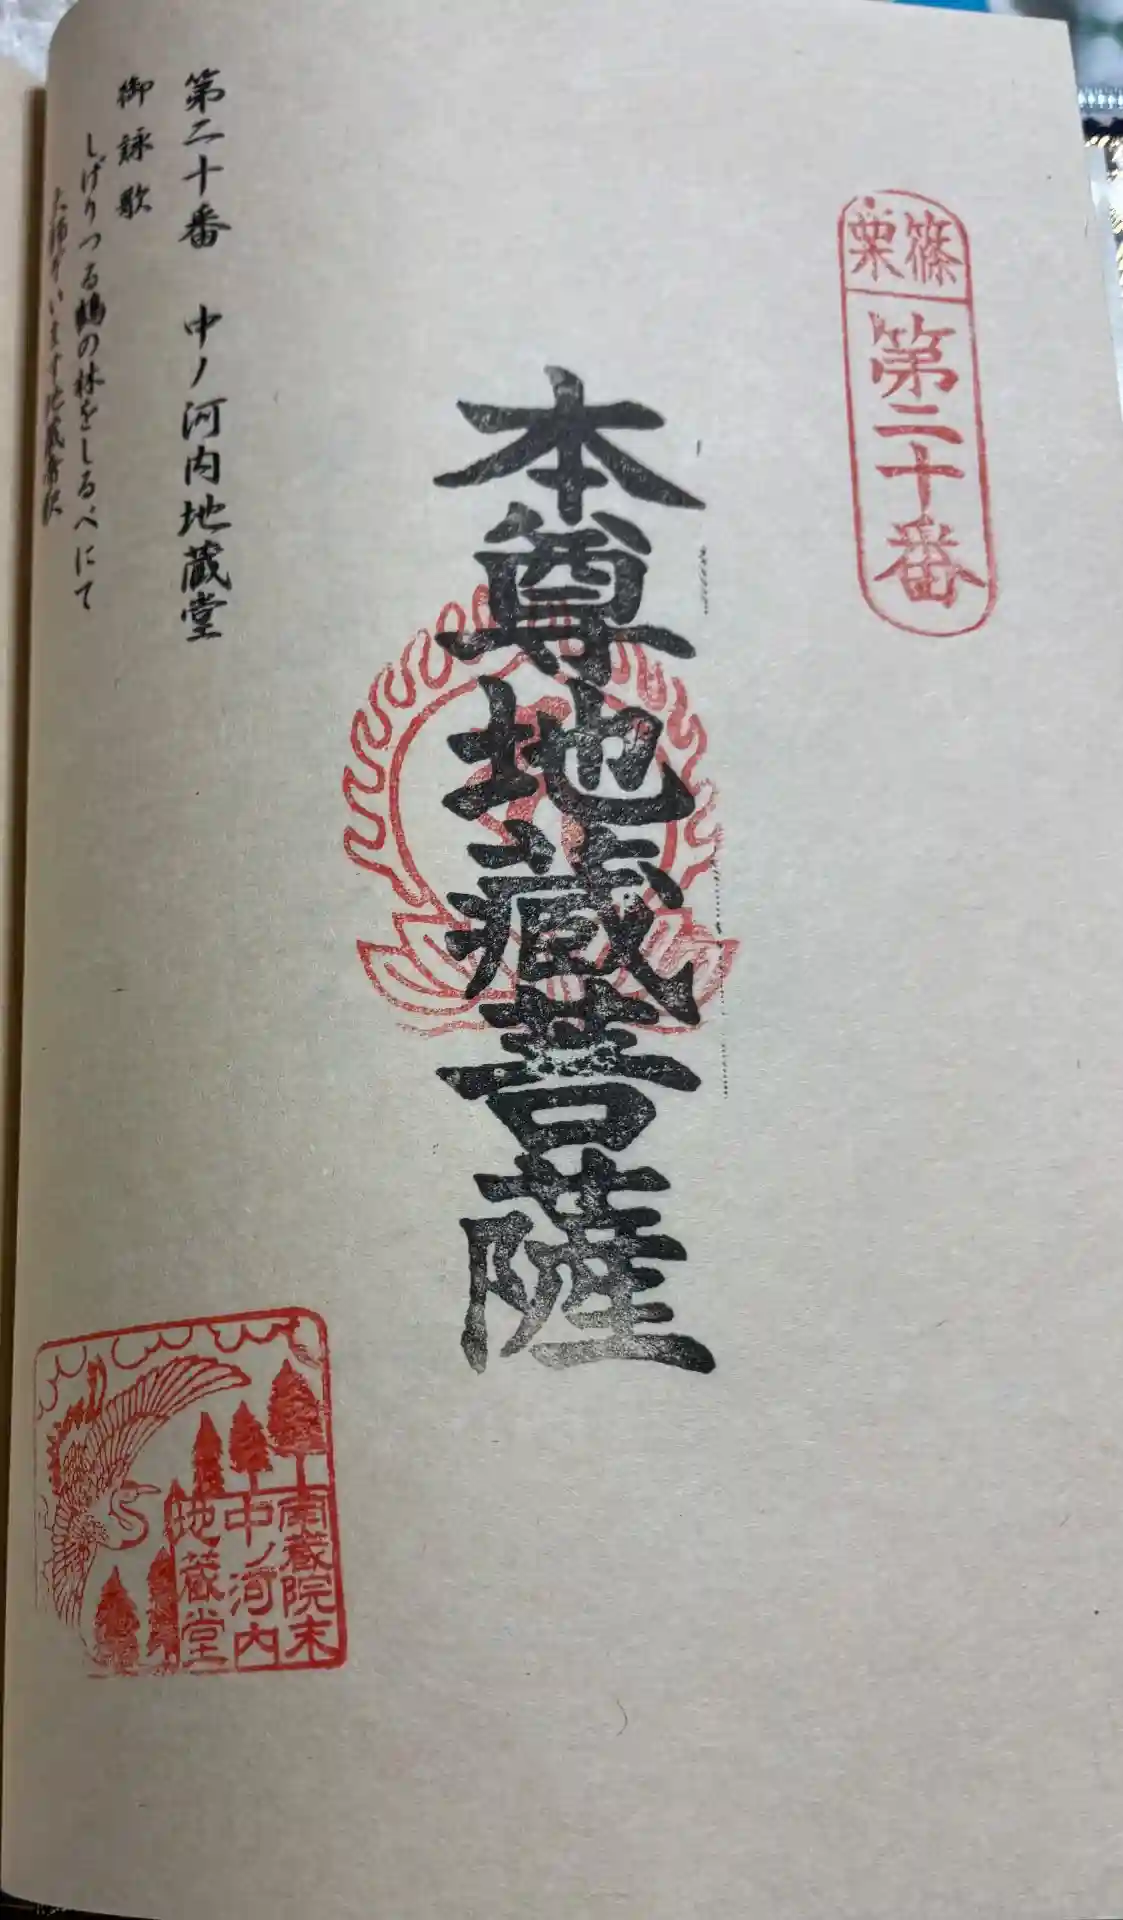 篠栗
第二十番
本尊地蔵菩薩
第二十番 中ノ河内地蔵堂
御詠歌
しげりつる鶴の林をしるべにて
大師もいます地蔵帝釈
南蔵院末
中ノ河内
地蔵堂